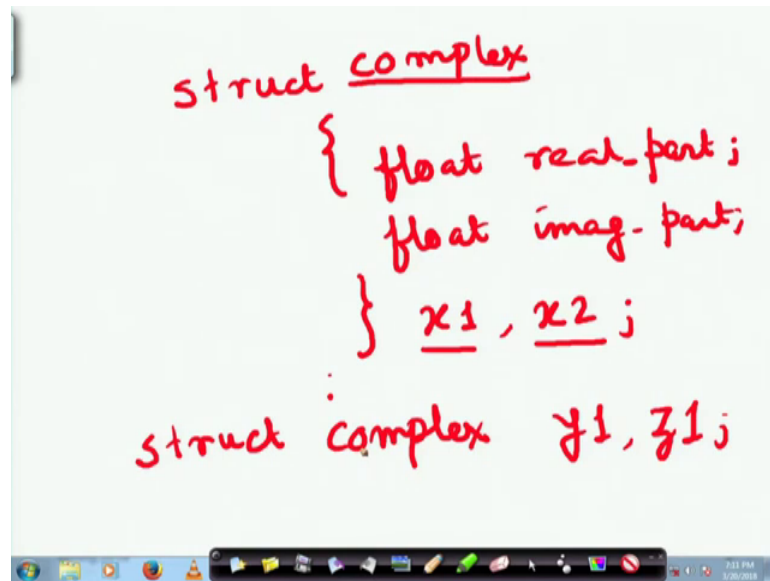 struct complex
{ float real_part;
float imag_part;
} x1, x2;
:
struct complex y1, z1;
7:11 PM
3/20/2018